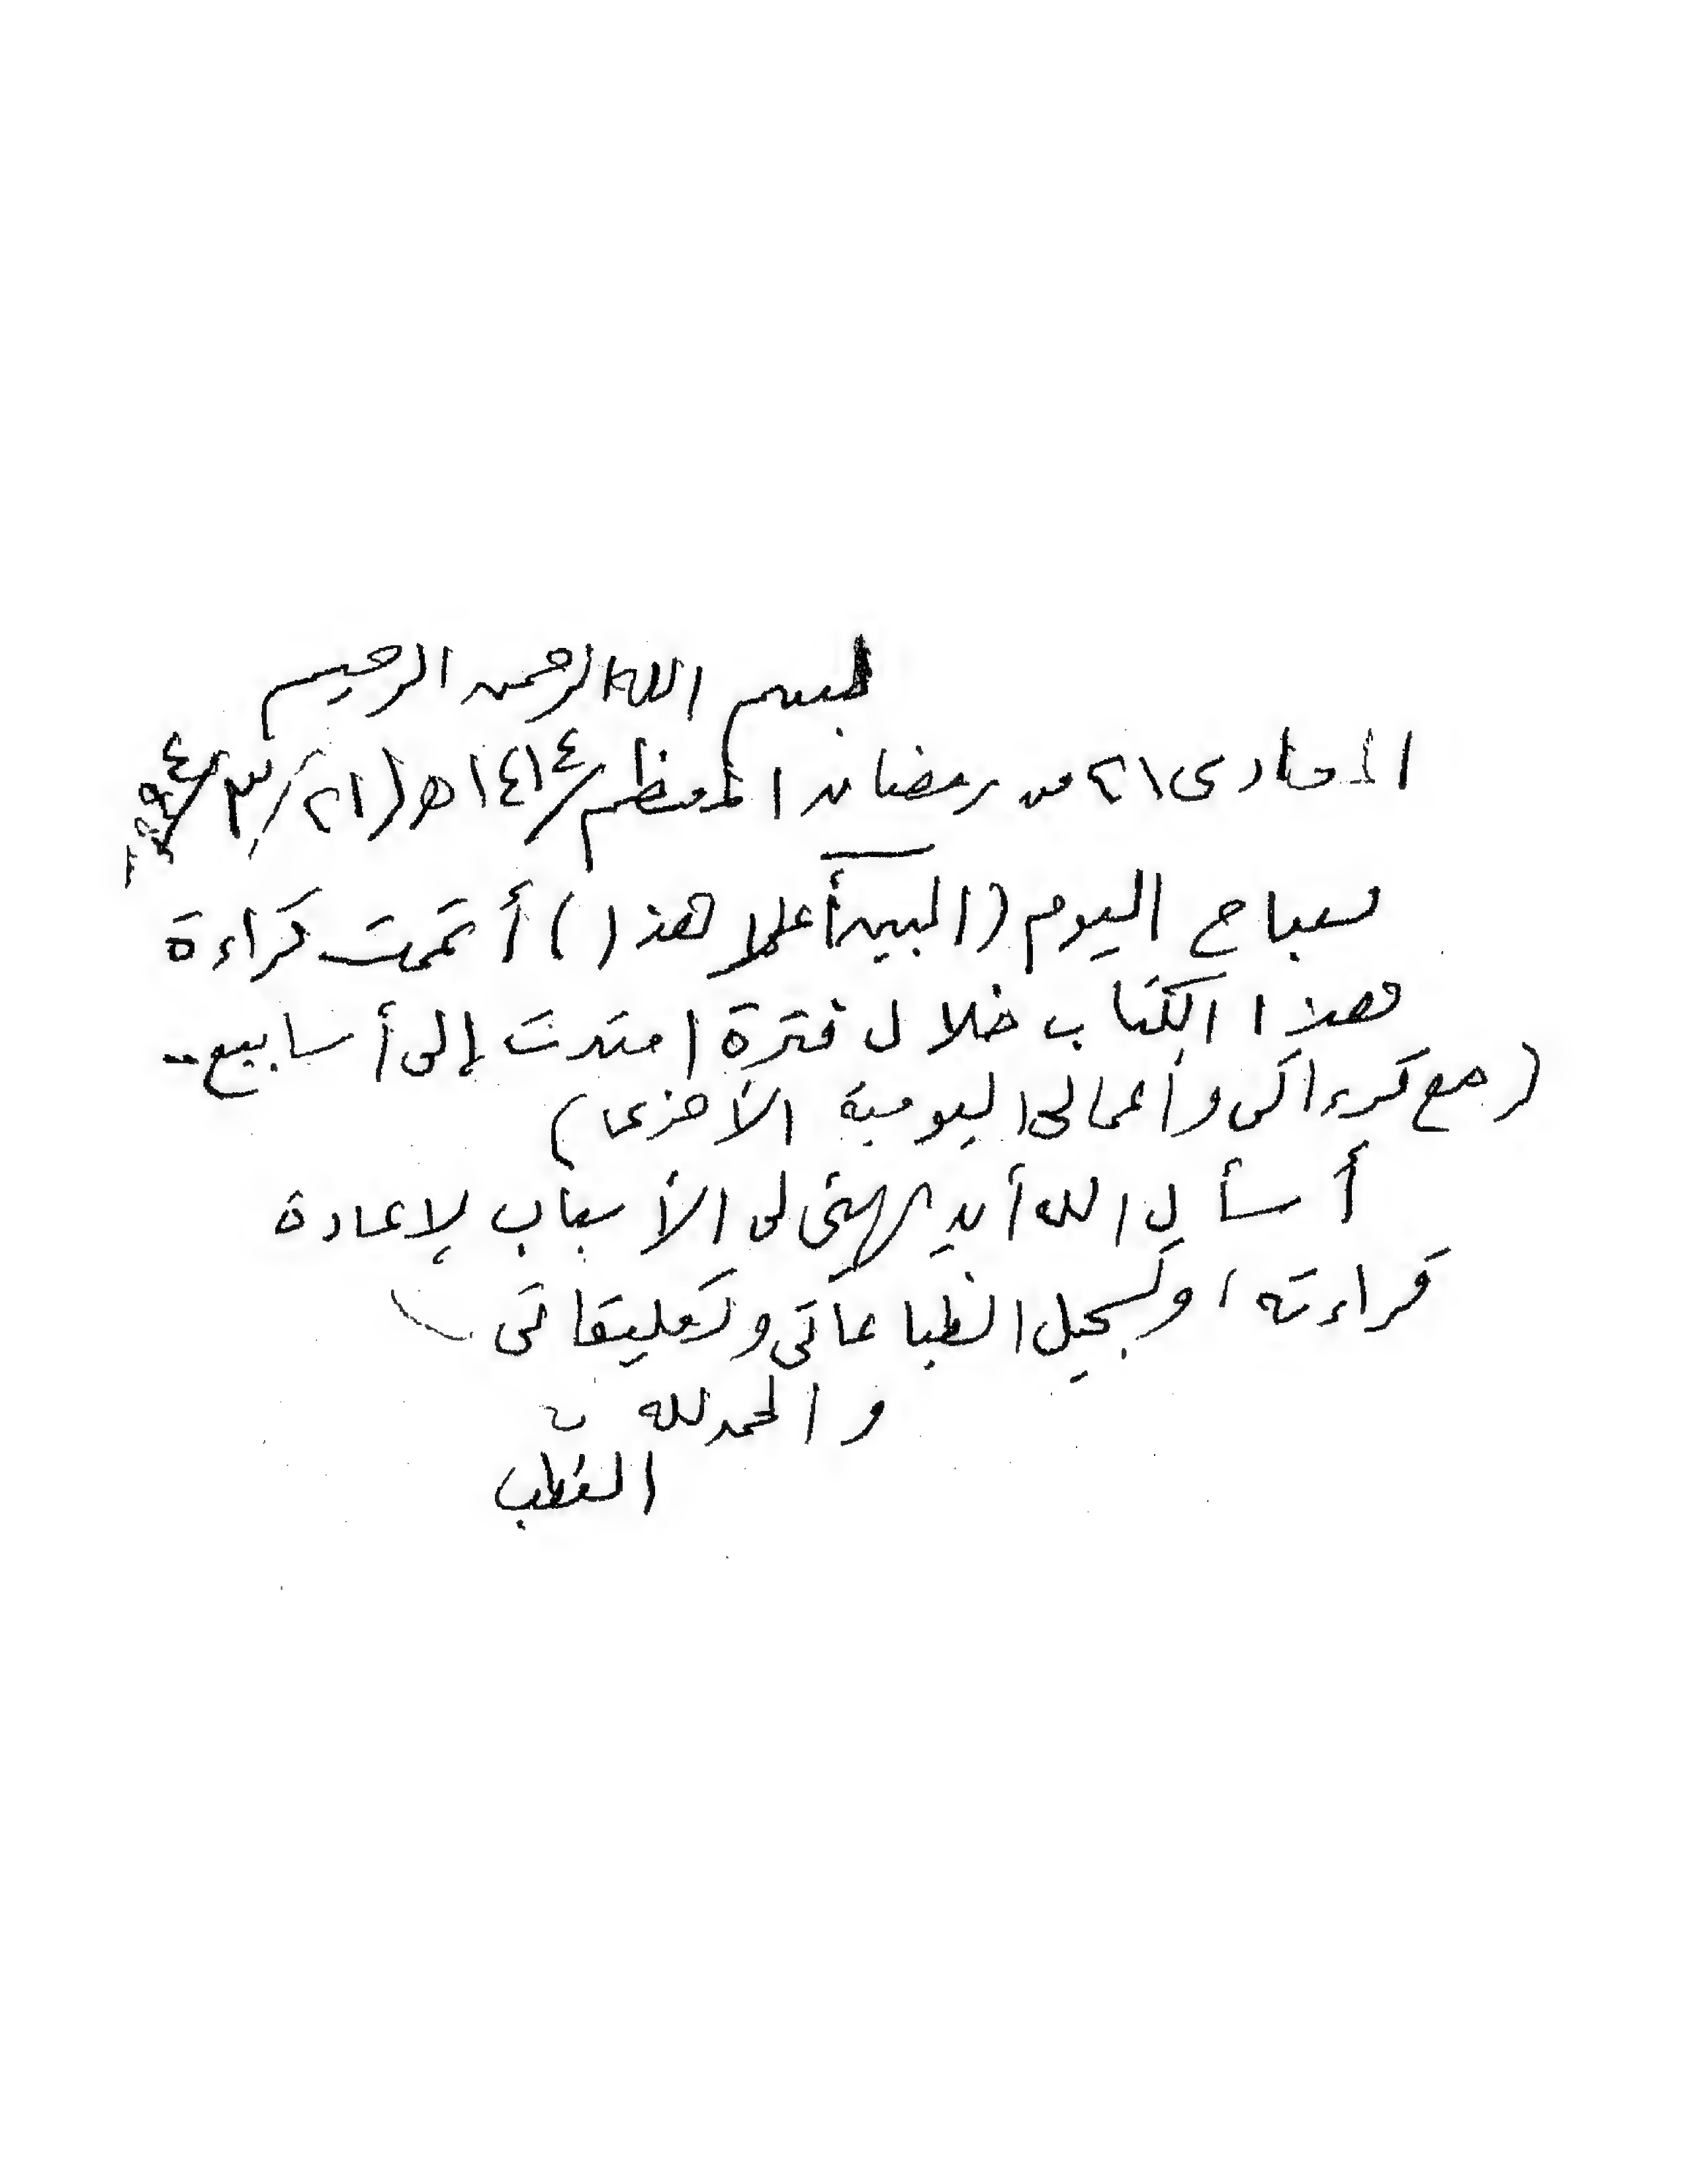 بسم الله الرحمن الرحيم
الحادى ٢١ من رمضان المعظم/١٤١٤هـ (٢١/٣/١٩٩٤
صباح اليوم (المبين أعلا هذا) أتممت قراءة
هذا الكتاب خلال فترة امتدت إلى أسابيع --
(مع قراءاتى وأعمالى اليومية الأخرى)
أسأل الله أن يهئ لى الأسباب لإعادة
قراءته، وتسجيل انطباعاتى وتعليقاتى
والحمد لله
القطب